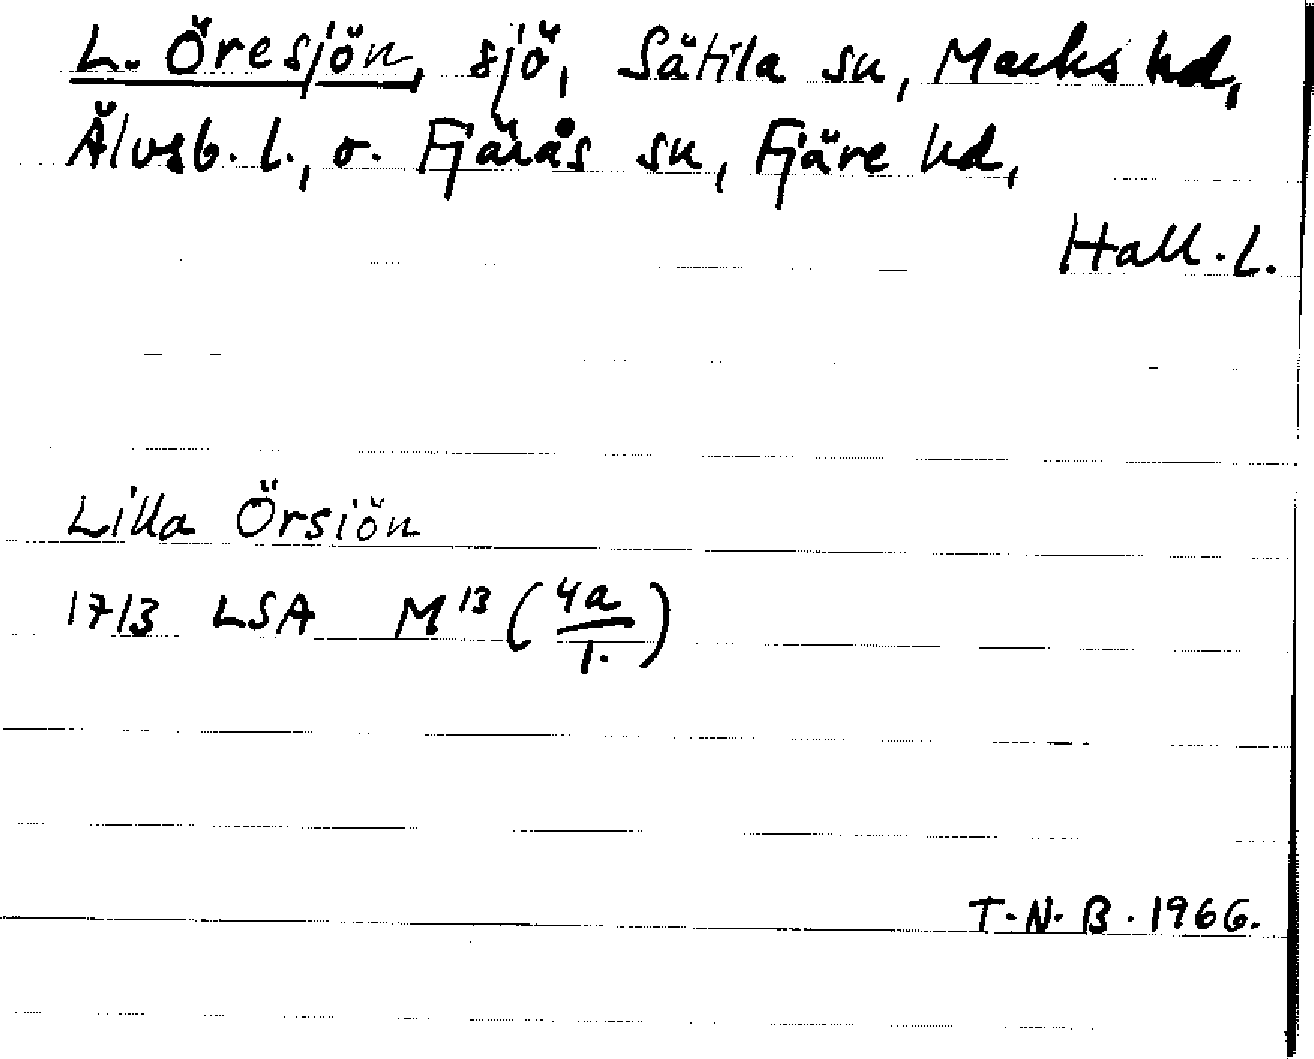 L. Öresjön, sjö, Sätila sn, Marks hd,
Älvsb. l., o. Fjärås sn, Fjäre hd,
Hall. l.
Lilla Örsiön
1713 LSA M¹³ (4a/1.)
T.N.B. 1966.